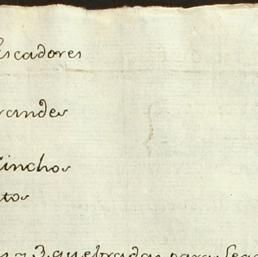 scadores
randes
inchos
tos
3 quebradas para